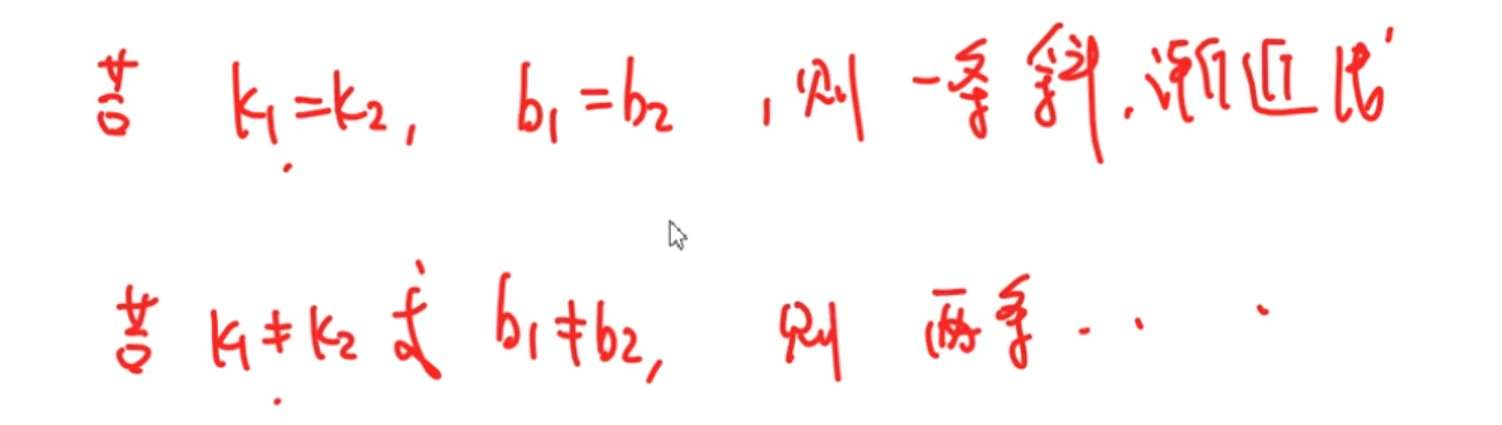 若 k₁=k₂, b₁=b₂ ,则 一条 斜.渐近线
若 k₁≠k₂ 或 b₁≠b₂, 则 两条 . . .